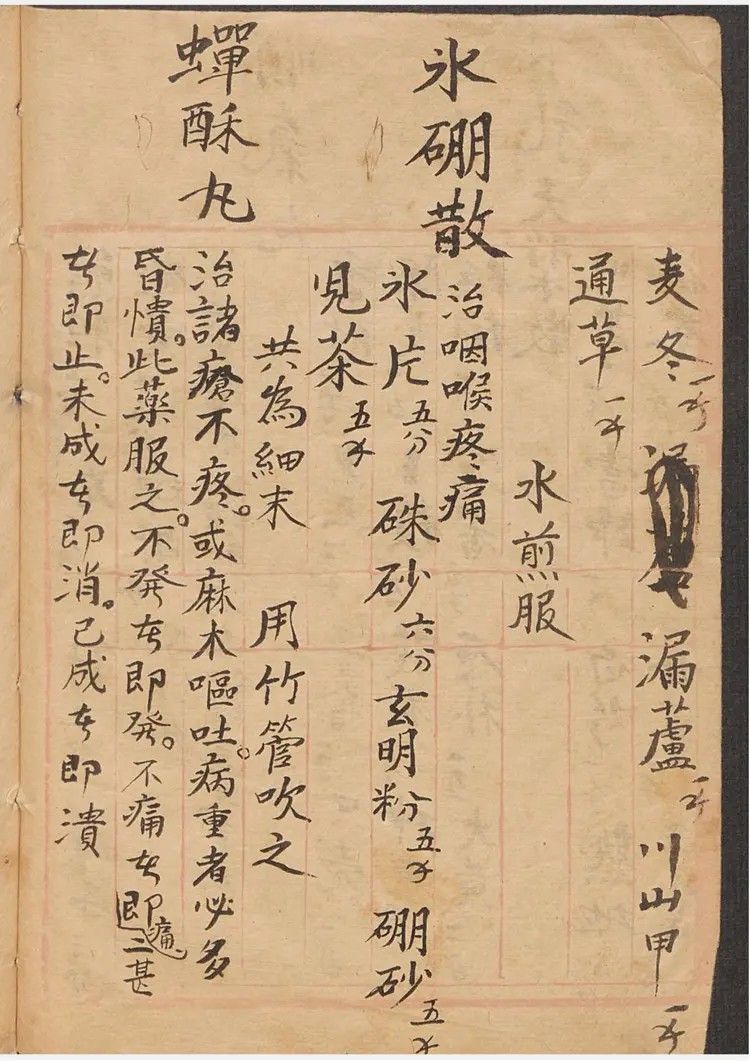 麦冬一錢 漏蘆一錢 川山甲一錢
通草一錢
水煎服
氷硼散
治咽喉疼痛
氷片五分 硃砂六分 玄明粉五錢 硼砂五錢
児茶五錢
共為細末 用竹管吹之
蟬酥丸
治諸瘡不疼。或麻木嘔吐。病重者必多
昏憒。此薬服之。不発者即発。不痛者即痛二甚
者即止。未成者即消。已成者即潰